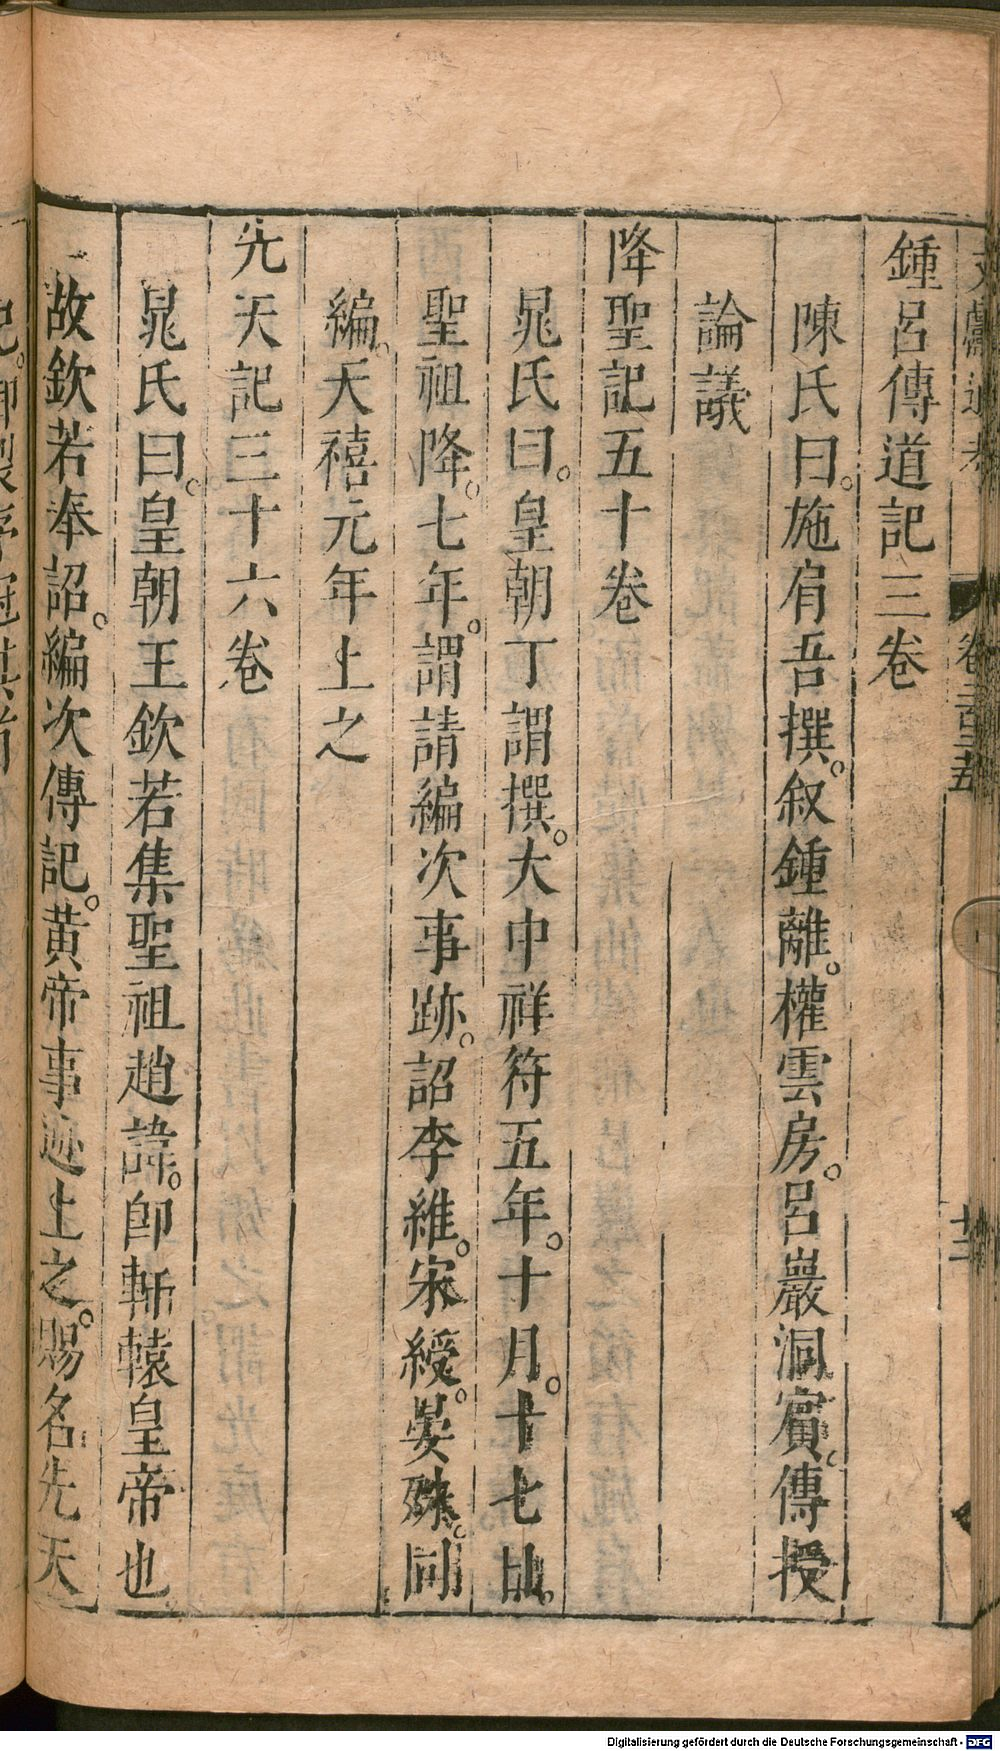 文獻通考　卷二百二十五　十二
鍾呂傳道記三卷
陳氏曰。施肩吾撰。叙鍾離。權雲房。呂巖洞賓。傳授
論議
降聖記五十卷
晁氏曰。皇朝丁謂撰。大中祥符五年。十月。十七日。
聖祖降。七年。謂請編次事跡。詔李維。宋綬。晏殊。同
編。天禧元年上之
先天記三十六卷
晁氏曰。皇朝王欽若集聖祖趙諱。卽軒轅皇帝也
故欽若奉詔。編次傳記。黃帝事迹上之。賜名先天
記。御製序冠其首
Digitalisierung gefördert durch die Deutsche Forschungsgemeinschaft - DFG